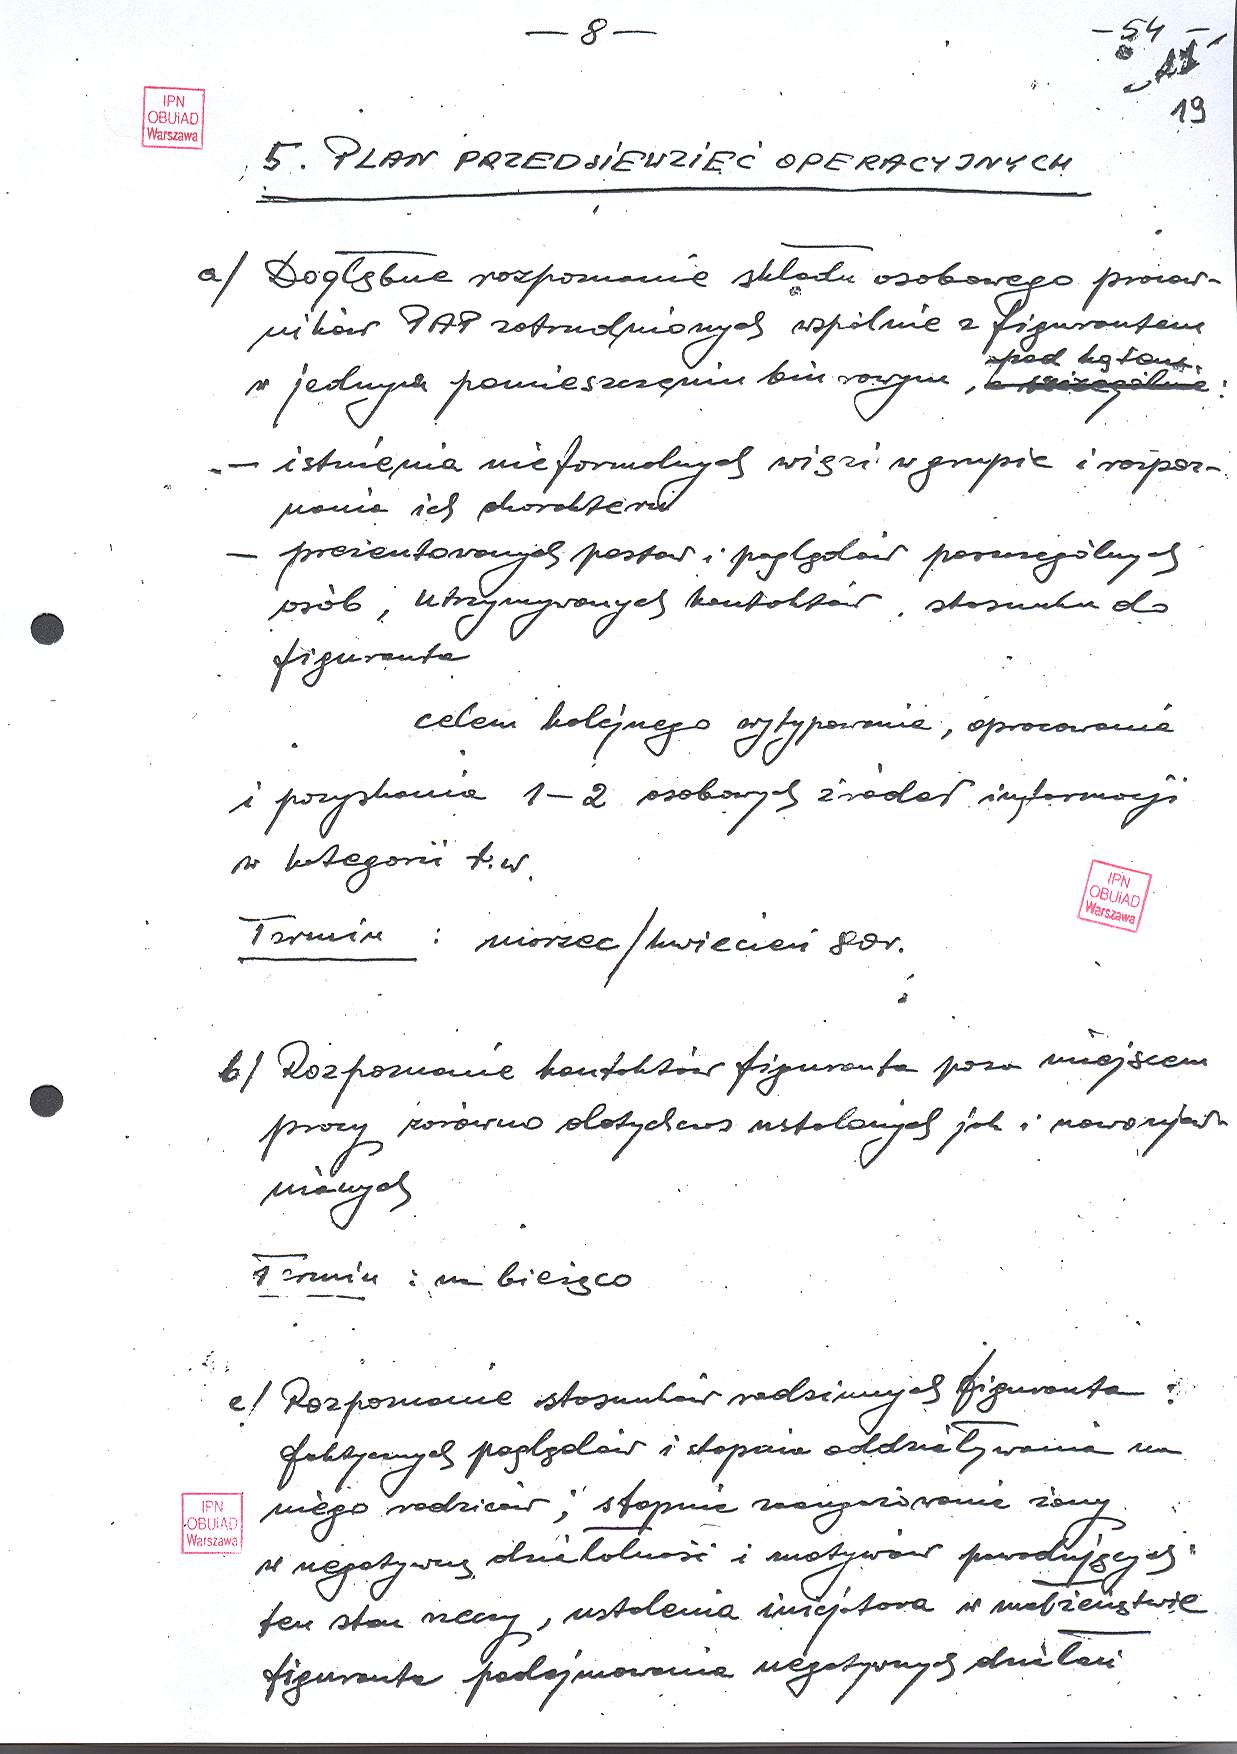 — 8 —
— 54 —
19
IPN
OBUiAD
Warszawa
5. PLAN PRZEDSIEWZIĘĆ OPERACYJNYCH
a/ Dogłębne rozpoznanie składu osobowego pracow-
ników PAP zatrudnionych wspólnie z figurantem
pod kątem
w jednym pomieszczeniu biurowym, a szczególnie :
— istnienia nieformalnych więzi w grupie i rozpoz-
nania ich charakteru
— prezentowanych postaw i poglądów poszczególnych
osób, utrzymywanych kontaktów, stosunku do
figuranta
celem kolejnego wytypowania, opracowania
i pozyskania 1-2 osobowych źródeł informacji
w kategorii t.w.
IPN
OBUiAD
Warszawa
Termin : marzec/kwiecień 80r.
b/ Rozpoznanie kontaktów figuranta poza miejscem
pracy zarówno dotychczas ustalonych jak i nowoujaw-
nianych
Termin : na bieżąco
c/ Rozpoznanie stosunków rodzinnych figuranta :
faktycznych poglądów i stopnia oddziaływania na
niego rodziców; stopnia zaangażowania żony
IPN
OBUiAD
Warszawa
w negatywną działalność i motywów powodujących
ten stan rzeczy, ustalenia inicjatora w małżeństwie
figuranta podejmowania negatywnych działań